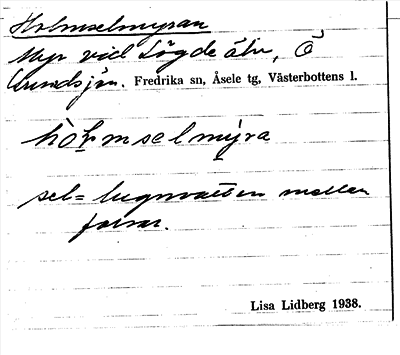 Holmselmyran
Myr vid Lögde älv, Ö
Lundsjön. Fredrika sn, Åsele tg, Västerbottens l.
hòlmselmýra
sel = lugnvatten mellan
forsar.
Lisa Lidberg 1938.